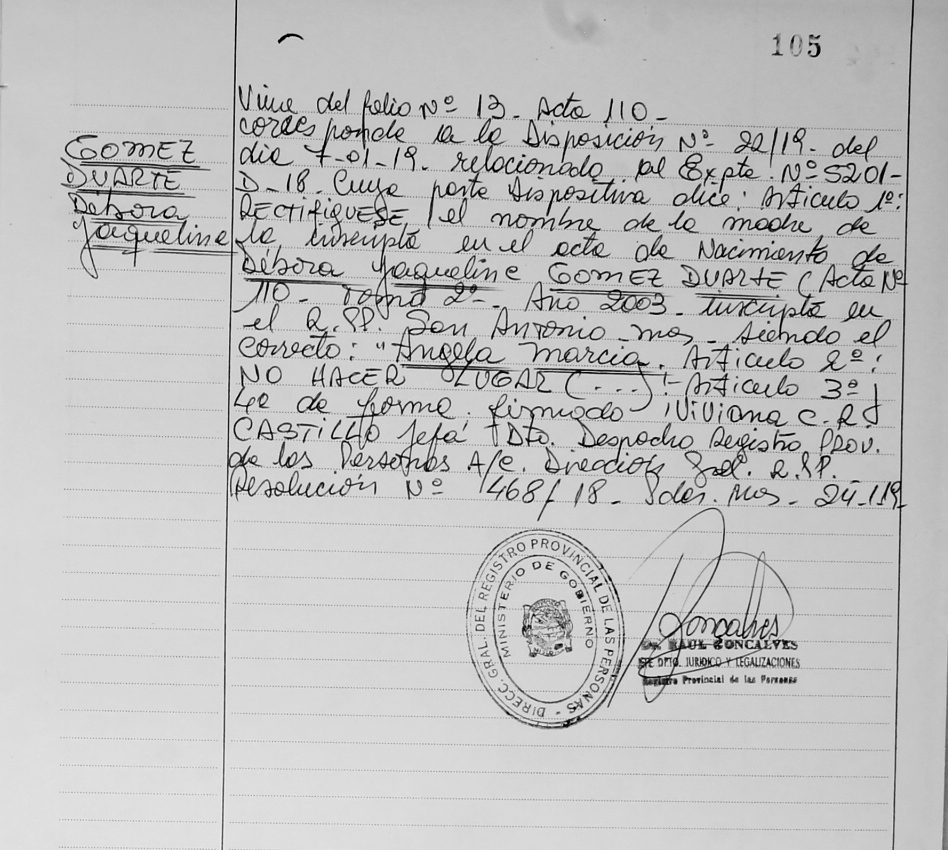 105
GOMEZ
DUARTE
Débora
Jaqueline
Viene del folio Nº 13. Acta 110-
corresponde a la Disposición Nº 22/19. del
día 7-01-19. relacionado al Expte. Nº 5201-
D-18. Cuya parte Dispositiva dice: Artículo 1º:
RECTIFIQUESE el nombre de la madre de
la inscripta en el acta de Nacimiento de
Débora Jaqueline GOMEZ DUARTE (Acta Nº
110- Tomo 2º- Año 2003- inscripta en
el R.P.P. San Antonio mns- siendo el
correcto: "Angela Marcia. Artículo 2º:
NO HACER LUGAR (...) Artículo 3º
de forma. firmado Viviana C. R.
CASTILLO Jefa Dto. Despacho Registro PROV.
de las Personas A/C. Dirección Gral. R.P.P.-
Resolución Nº 1468/18- Pdas. Mns- 24-1-19-
DIRECC. GRAL. DEL REGISTRO PROVINCIAL DE LAS PERSONAS -
MINISTERIO DE GOBIERNO
Goncalves
Dr. RAUL GONCALVES
JEFE DPTO. JURIDICO Y LEGALIZACIONES
Registro Provincial de las Personas